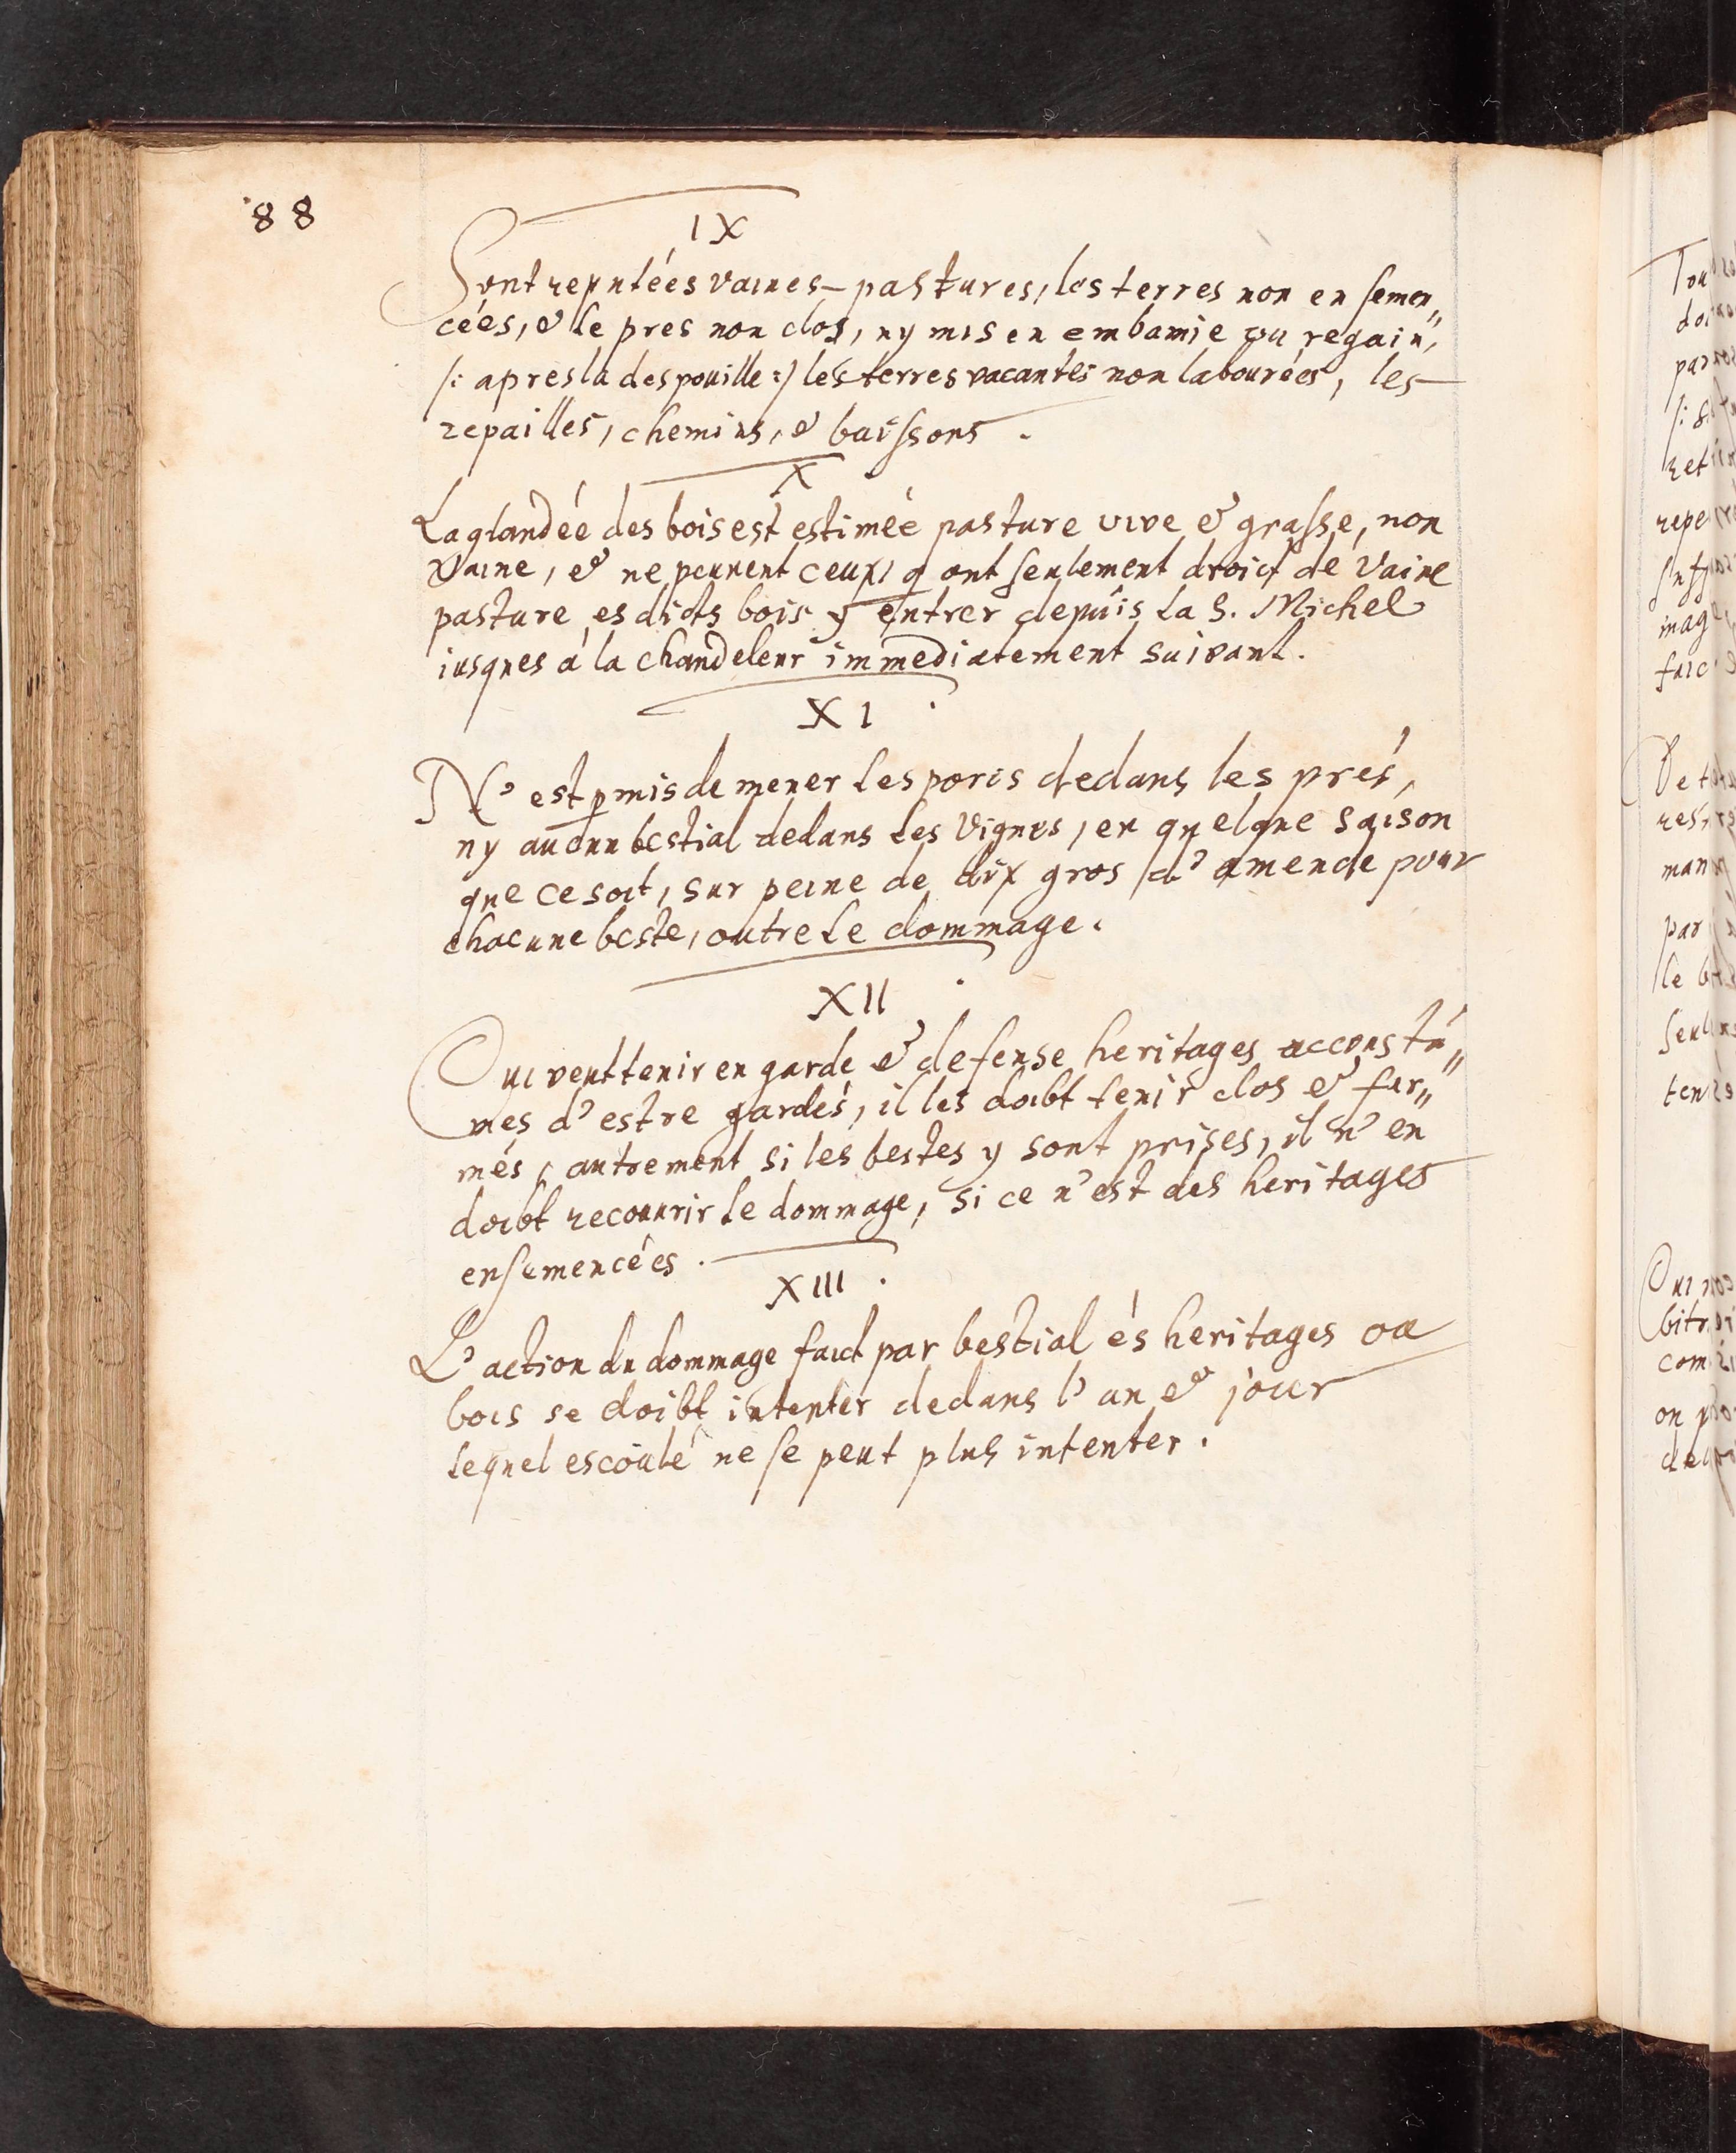 88
IX
Sont reputéés vaines-pastures, les terres non en semen„
céés, & le pres non clos, ny mis en embamie ou regain,
/: apres la despouille :/ les terres vacantes non labouréés, les
repailles, chemins, & buissons .
X
La glandéé des bois est estiméé pasture vive & grasse, non
Vaine, & ne peuuent ceux, q ont seulement droict de Vaine
pasture es dicts bois y entrer depuis la S. Michel
iusques á la chandeleur immediatement suivant.
XI
N' est pmis de mener les porcs dedans les prés,
ny aucun bestial dedans les Vignes, en quelque saison
que ce soit, sur peine de dix gros d' amende pour
chacune beste, outre le dommage.
XII
Qui veut tenir en garde & defense heritages accoustu„
mes d' estre gardés, il les doibt tenir clos & fer„
més, autrement si les bestes y sont prises, il n' en
doibt recouurir le dommage, si ce n' est des heritages
ensemencéés .
XIII .
L' action du dommage faict par bestial és heritages ou
bois se doibt intenter dedans l' an & jour
lequel escoulé ne se peut plus intenter .